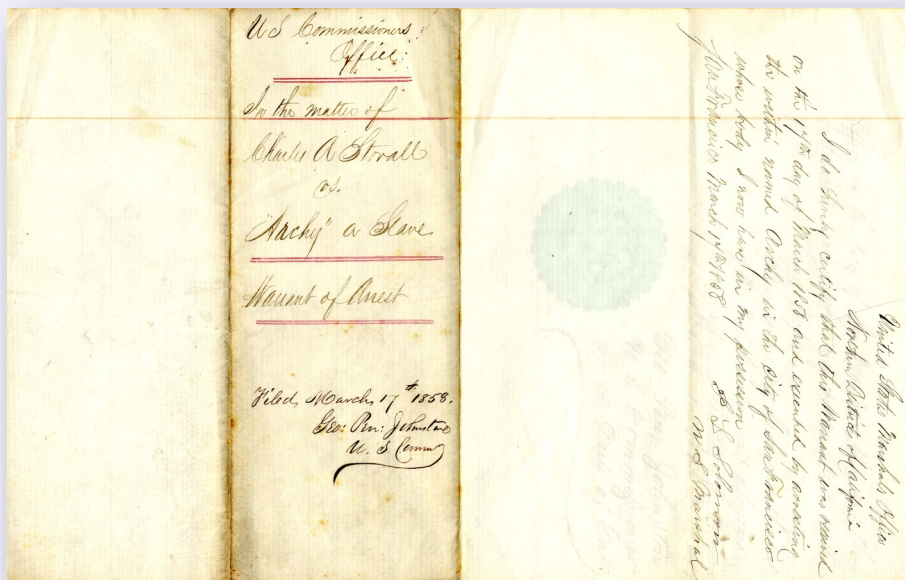 US Commissioners
Office
In the matter of
Charles A Stovall
vs.
"Archy" a Slave
Warrant of Arrest
Filed March 17th 1858.
Geo: Pen: Johnston
U. S Comm
United States Marshals Office
Northern District of California
I do hereby certify that this Warrant was received
on the 17th day of March 1858 and executed by arresting
the within named Archy in the City of San Francisco
whose body I now have in my possession
San Francisco March 17th 1858
Solomon
U S Marshal